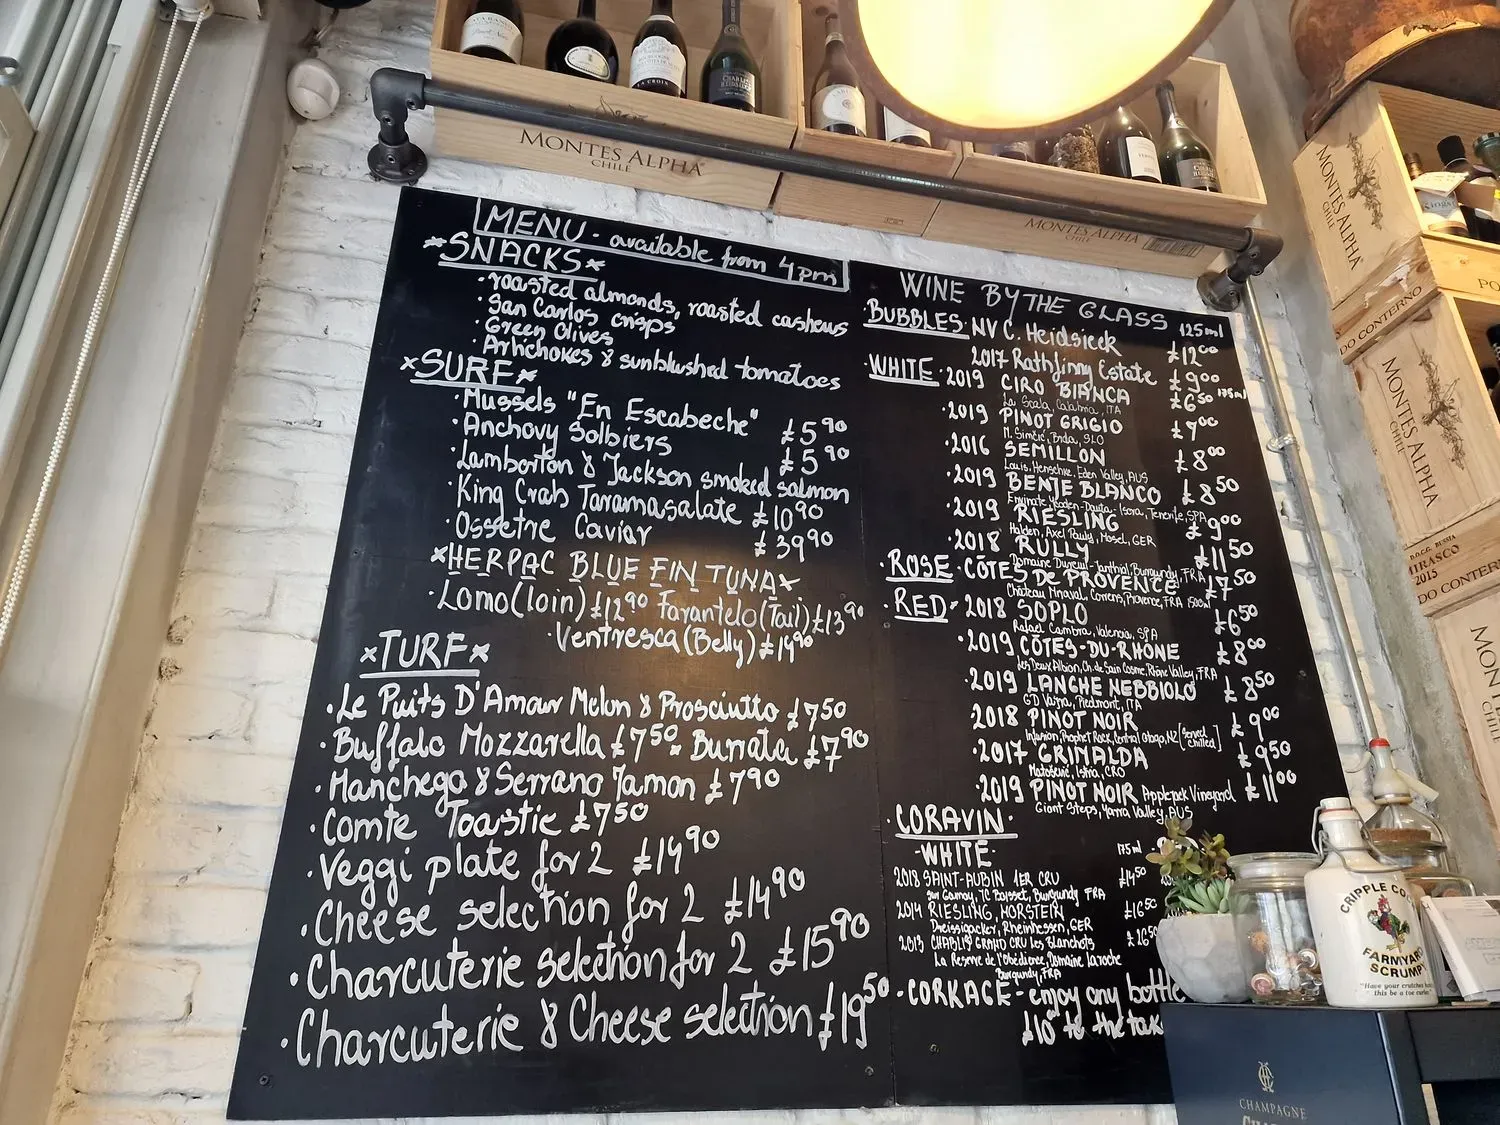 MONTES ALPHA
CHILE
MONTES ALPHA
CHILE
MENU - available from 4pm
*SNACKS*
· roasted almonds, roasted cashews
· San Carlos crisps
· Green Olives
· Artichokes & sunblushed tomatoes
*SURF*
· Mussels "En Escabeche" £5 90
· Anchovy Solbiers £5 90
· Lamberton & Jackson smoked salmon
· King Crab Taramasalate £10 90
· Ossetne Caviar £39 90
*HERPAC BLUE FIN TUNA*
· Lomo (loin) £12 90 Farantelo (Tail) £13 90
· Ventresca (Belly) £14 90
*TURF*
· Le Puits D'Amour Melon & Prosciutto £7 50
· Buffalo Mozzarella £7 50 · Burrata £7 90
· Manchego & Serrano Jamon £7 90
· Comte Toastie £7 50
· Veggi plate for 2 £14 90
· Cheese selection for 2 £14 90
· Charcuterie selection for 2 £15 90
· Charcuterie & Cheese selection £19 50
WINE BY THE GLASS 125ml
BUBBLES · NV C. Heidsieck £12 00
2017 Rathfinny Estate £9 00
· WHITE · 2019 CIRO BIANCA £6 50 175ml
La Scala, Calabria, ITA
· 2019 PINOT GRIGIO £7 00
M. Simcic, Brda, SLO
· 2016 SEMILLON £8 00
Louis, Henschke, Eden Valley, AUS
· 2019 BENJE BLANCO £8 50
Envinate Ycoden-Dauta-Isora, Tenerife, SPA
· 2019 RIESLING £9 00
Halden, Axel Pauly, Mosel, GER
· 2018 RULLY £11 50
Domaine Dureuil-Janthial, Burgundy, FRA
· ROSE · COTES DE PROVENCE £7 50
Chateau Miraval, Correns, Provence, FRA 1500ml
· RED · 2018 SOPLO £6 50
Rafael Cambra, Valencia, SPA
· 2019 CÔTES-DU-RHÔNE £8 00
Les Deux Albion, Ch. de Saint Cosme, Rhône Valley, FRA
· 2019 LANGHE NEBBIOLO £8 50
GD Vajra, Piedmont, ITA
2018 PINOT NOIR £9 00
Infusion, Prophet Rock, Central Otago, NZ [served chilled]
· 2017 GRIMALDA £9 50
Matošević, Istria, CRO
· 2019 PINOT NOIR Applejack Vineyard £11 00
Giant Steps, Yarra Valley, AUS
· CORAVIN ·
- WHITE - 175ml
2018 SAINT-AUBIN 1ER CRU £14 50
Sur Gamay, JC Boisset, Burgundy FRA
2014 RIESLING, HORSTEIN £16 50
Dreissigacker, Rheinhessen, GER
2013 CHABLIS GRAND CRU Les Blanchots £26 50
La Reserve de l'Obédience, Domaine Laroche
Burgundy, FRA
· CORKAGE - enjoy any bottle
£10 to the take
MONTES ALPHA
CHILE
DO CONTERNO
MONTES ALPHA
CHILE
MIRASCO
2015
DO CONTERNO
CRIPPLE CO
FARMYARD
SCRUMPY
"Have your crutches
this be a toe curler"
CHAMPAGNE